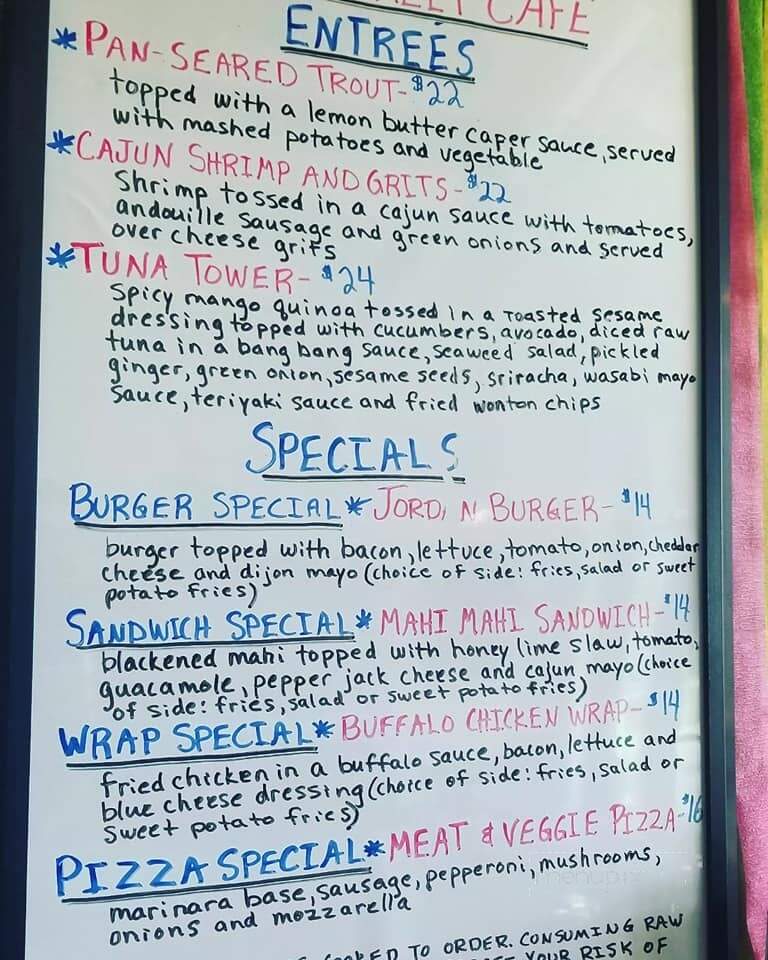 CAFE
ENTREÉS
*PAN-SEARED TROUT-$22
topped with a lemon butter caper sauce, served
with mashed potatoes and vegetable
*CAJUN SHRIMP AND GRITS-$22
Shrimp tossed in a cajun sauce with tomatoes,
andouille sausage and green onions and served
over cheese grits
*TUNA TOWER-$24
Spicy mango quinoa tossed in a toasted sesame
dressing topped with cucumbers, avocado, diced raw
tuna in a bang bang sauce, seaweed salad, pickled
ginger, green onion, sesame seeds, sriracha, wasabi mayo
sauce, teriyaki sauce and fried wonton chips
SPECIALS
BURGER SPECIAL*JORD N BURGER-$14
burger topped with bacon, lettuce, tomato, onion, cheddar
cheese and dijon mayo (choice of side: fries, salad or sweet
potato fries)
SANDWICH SPECIAL*MAHI MAHI SANDWICH-$14
blackened mahi topped with honey lime slaw, tomato,
guacamole, pepper jack cheese and cajun mayo (choice
of side: fries, salad or sweet potato fries)
WRAP SPECIAL*BUFFALO CHICKEN WRAP-$14
fried chicken in a buffalo sauce, bacon, lettuce and
blue cheese dressing (choice of side: fries, salad or
sweet potato fries)
PIZZA SPECIAL*MEAT & VEGGIE PIZZA-$16
marinara base, sausage, pepperoni, mushrooms,
onions and mozzarella
COOKED TO ORDER. CONSUMING RAW
YOUR RISK OF